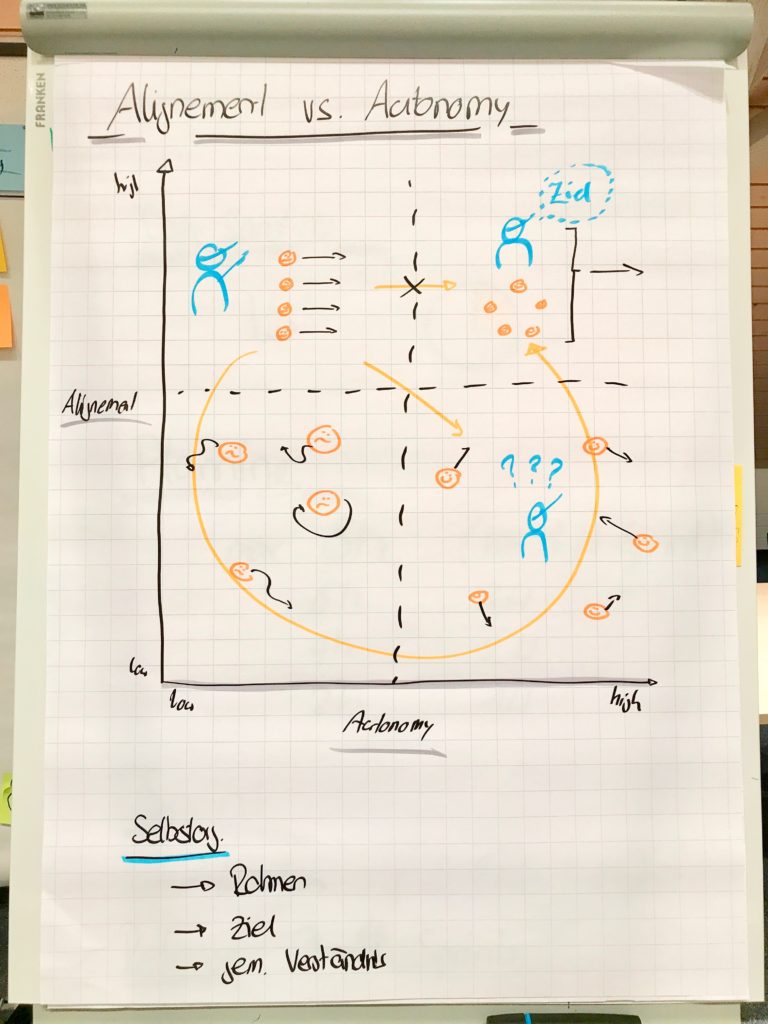 FRANKEN
Alignement vs. Autonomy
high
Ziel
Alignement
? ? ?
low
low
high
Autonomy
Selbstorg.
→ Rahmen
→ Ziel
→ gem. Verständnis